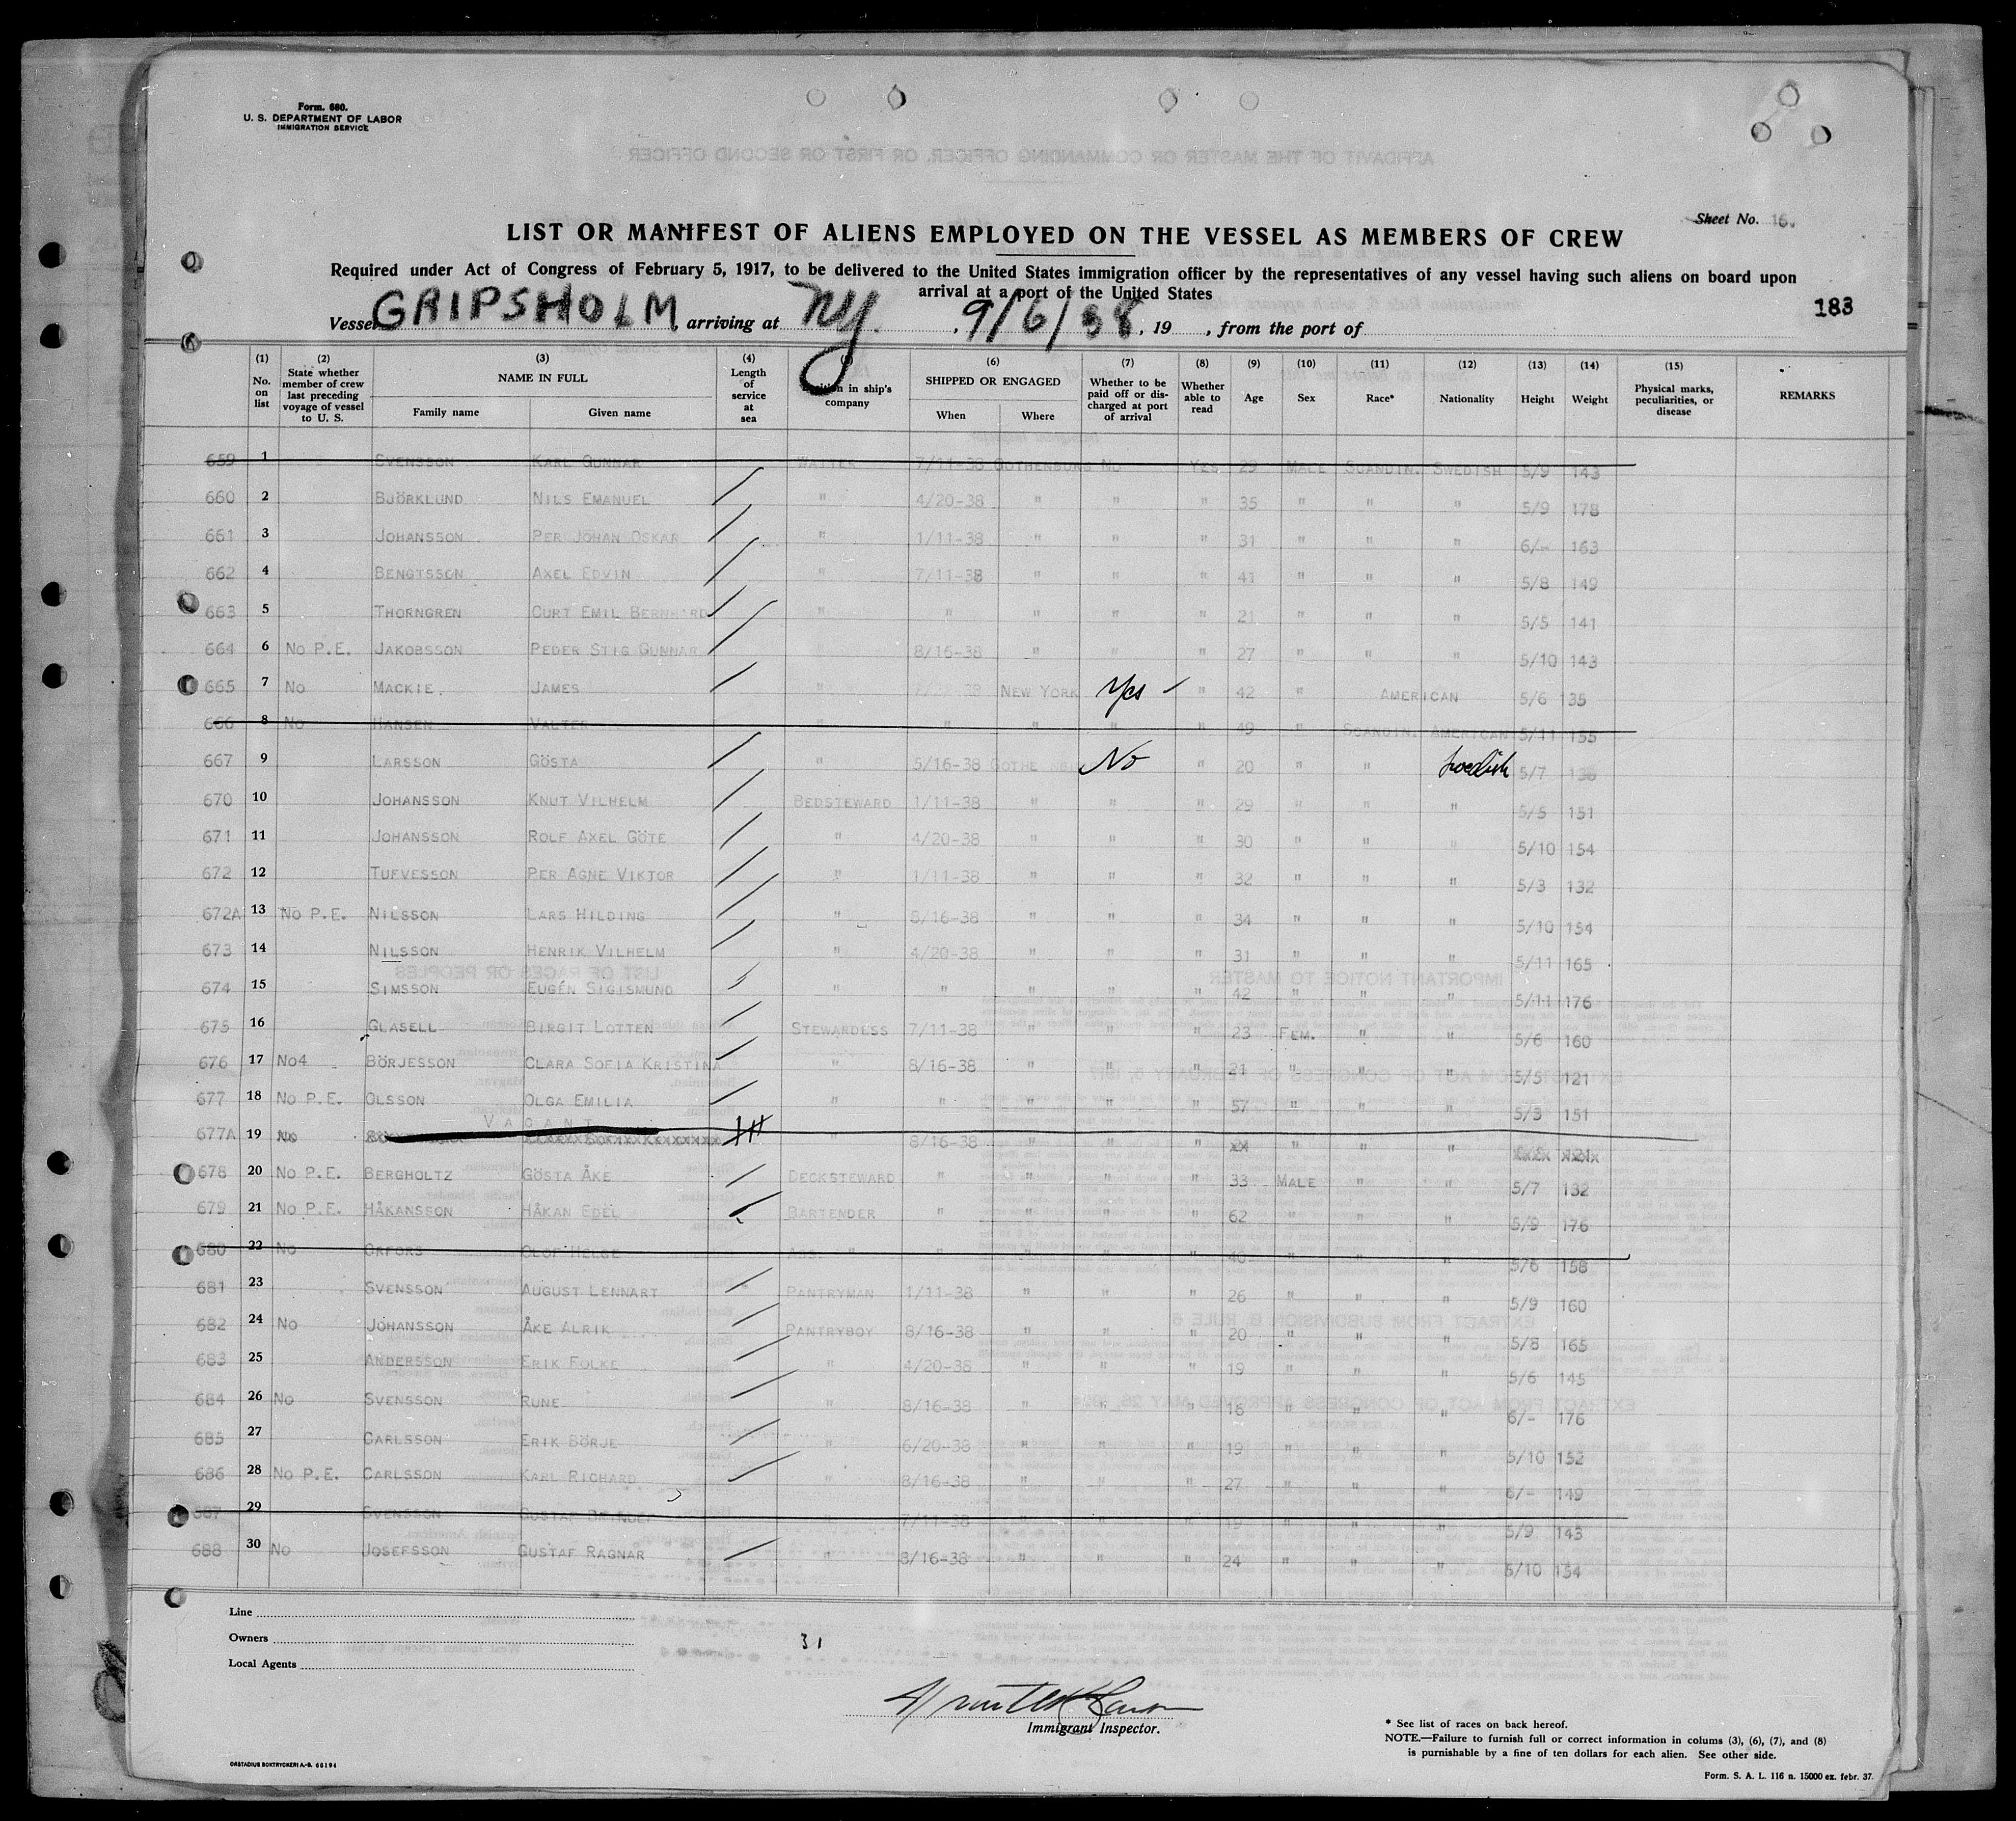 Form. 680.
U. S. DEPARTMENT OF LABOR
IMMIGRATION SERVICE
Sheet No. 16.
LIST OR MANIFEST OF ALIENS EMPLOYED ON THE VESSEL AS MEMBERS OF CREW
Required under Act of Congress of February 5, 1917, to be delivered to the United States immigration officer by the representatives of any vessel having such aliens on board upon
arrival at a port of the United States
183
Vessel GRIPSHOLM, arriving at NY., 9/6/38, 19 , from the port of
(1) No. on list (2) State whether member of crew last preceding voyage of vessel to U. S. (3) NAME IN FULL Family name Given name (4) Length of service at sea (5) Position in ship's company (6) SHIPPED OR ENGAGED When Where (7) Whether to be paid off or discharged at port of arrival (8) Whether able to read (9) Age (10) Sex (11) Race* (12) Nationality (13) Height (14) Weight (15) Physical marks, peculiarities, or disease REMARKS
659 1 SVENSSON KARL GUNNAR WAITER 7/11-38 GOTHENBURG NO YES 29 MALE SCANDIN. SWEDISH 5/9 143
660 2 BJÖRKLUND NILS EMANUEL " 4/20-38 " " " 35 " " " 5/9 178
661 3 JOHANSSON PER JOHAN OSKAR " 1/11-38 " " " 31 " " " 6/- 163
662 4 BENGTSSON AXEL EDVIN " 7/11-38 " " " 41 " " " 5/8 149
663 5 THORNGREN CURT EMIL BERNHARD " " " " " 21 " " " 5/5 141
664 6 NO P.E. JAKOBSSON PEDER STIG GUNNAR " 8/16-38 " " " 27 " " " 5/10 143
665 7 NO MACKIE. JAMES " NEW YORK Yes " 42 " AMERICAN 5/6 135
666 8 NO HANSEN VALTER " " " " " 49 " SCANDIN. AMERICAN 5/11 155
667 9 LARSSON GÖSTA " 5/16-38 No " 20 " " Swedish 5/7 136
670 10 JOHANSSON KNUT VILHELM BEDSTEWARD 1/11-38 " " " 29 " " " 5/5 151
671 11 JOHANSSON ROLF AXEL GÖTE " 4/20-38 " " " 30 " " " 5/10 154
672 12 TUFVESSON PER AGNE VIKTOR " 1/11-38 " " " 32 " " " 5/3 132
672A 13 NO P.E. NILSSON LARS HILDING " 8/16-38 " " " 34 " " " 5/10 154
673 14 NILSSON HENRIK VILHELM " 4/20-38 " " " 31 " " " 5/11 165
674 15 SIMSSON EUGÉN SIGISMUND " " " " " 42 " " " 5/11 176
675 16 GLASELL BIRGIT LOTTEN STEWARDESS 7/11-38 " " " 23 FEM. " " 5/6 160
676 17 NO4 BÖRJESSON CLARA SOFIA KRISTINA " 8/16-38 " " " 21 " " " 5/5 121
677 18 NO P.E. OLSSON OLGA EMILIA " " " " " 57 " " " 5/3 151
677A 19 NO VACANT " 8/16-38 " " " " " "
678 20 NO P.E. BERGHOLTZ GÖSTA ÅKE DECKSTEWARD " " " " 33 MALE " " 5/7 132
679 21 NO P.E. HÅKANSSON HÅKAN EDEL BARTENDER " " " " 62 " " " 5/9 176
680 22 NO ORFORS OLOF HELGE ASS. " " " " " 40 " " " 5/6 158
681 23 SVENSSON AUGUST LENNART PANTRYMAN 1/11-38 " " " 26 " " " 5/9 160
682 24 NO JOHANSSON ÅKE ALRIK PANTRYBOY 8/16-38 " " " 20 " " " 5/8 165
683 25 ANDERSSON ERIK FOLKE " 4/20-38 " " " 19 " " " 5/6 145
684 26 NO SVENSSON RUNE " 8/16-38 " " " 18 " " " 6/- 176
685 27 CARLSSON ERIK BÖRJE " 6/20-38 " " " 19 " " " 5/10 152
686 28 NO P.E. CARLSSON KARL RICHARD " 8/16-38 " " " 27 " " " 6/- 149
687 29 SVENSSON GUSTAF " 7/11-38 " " " 19 " " " 5/9 143
688 30 NO JOSEFSSON GUSTAF RAGNAR " 8/16-38 " " " 24 " " " 5/10 154
Line
Owners
Local Agents
31
Immigrant Inspector.
* See list of races on back hereof.
NOTE.—Failure to furnish full or correct information in colums (3), (6), (7), and (8)
is punishable by a fine of ten dollars for each alien. See other side.
ORSTADIUS BOKTRYCKERI A.-B. 66194
Form. S. A. L. 116 n. 15000 ex. febr. 37.